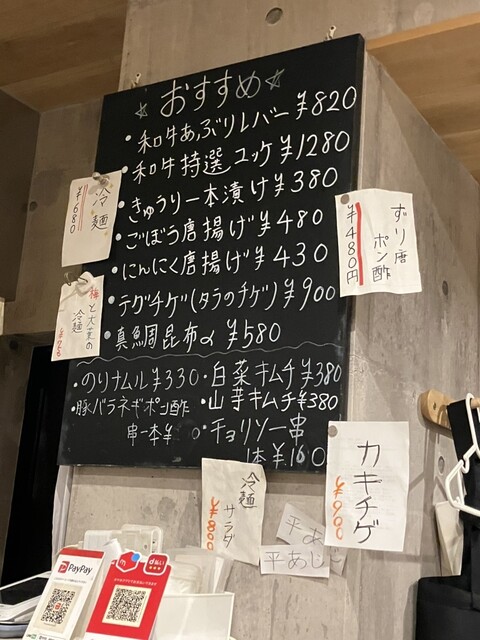 ☆おすすめ☆
・和牛あぶりレバー ¥820
・和牛特選ユッケ ¥1280
・きゅうり一本漬け ¥380
・ごぼう唐揚げ ¥480
・にんにく唐揚げ ¥430
・テグチゲ(タラのチゲ) ¥900
・真鯛昆布〆 ¥580
・のりナムル ¥330
・白菜キムチ ¥380
・豚バラネギポン酢
串一本¥
・山芋キムチ ¥380
・チョリソー串
1本 ¥160
冷麺
¥680
梅と大葉の
冷麺
ずり唐
ポン酢
¥480円
カキチゲ
¥900
冷麺
サラダ
¥800
平あ
平あじ
PayPay
d払い